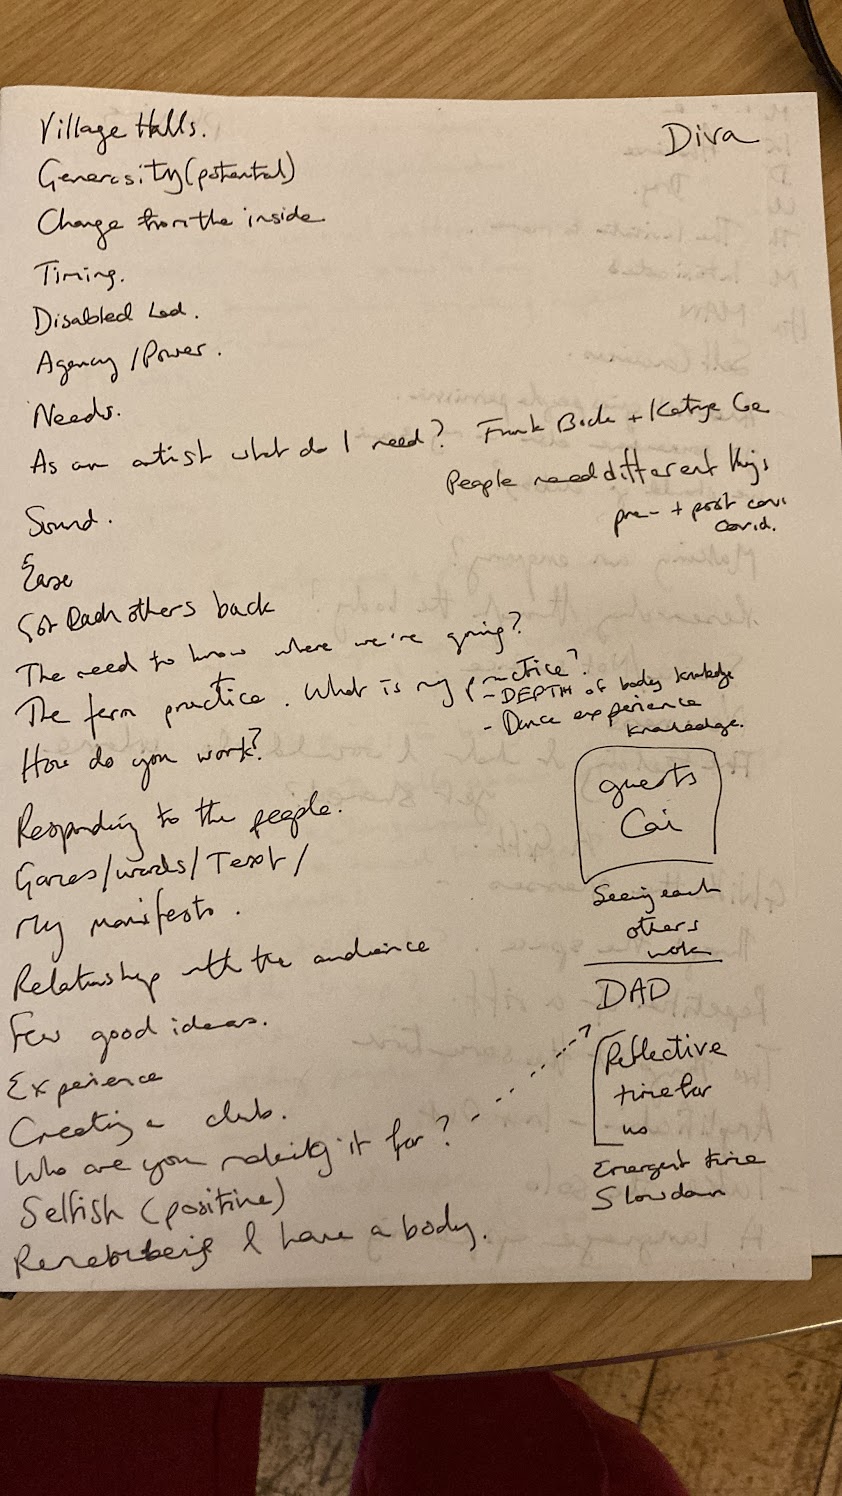 Village Halls.
Diva
Generosity (potential)
Change from the inside
Timing.
Disabled Led.
Agency / Power.
Needs.
As an artist what do I need?
People need different
pre- + post covi
covid.
Sound.
Ease
Got Each others back
The need to know where we're going?
The term practice. What is my practice?
- DEPTH of body knowledge
- Dance experience
knowledge.
How do you work?
Responding to the people.
guests
Cai
Seeing each
others
work
Games/words/Text/
My manifesto.
Relationship with the audience
DAD
Few good ideas.
Experience
Reflective
time for
us
Creating a club.
Who are you making it for?
Emergent time
Slow down
Selfish (positive)
I have a body.